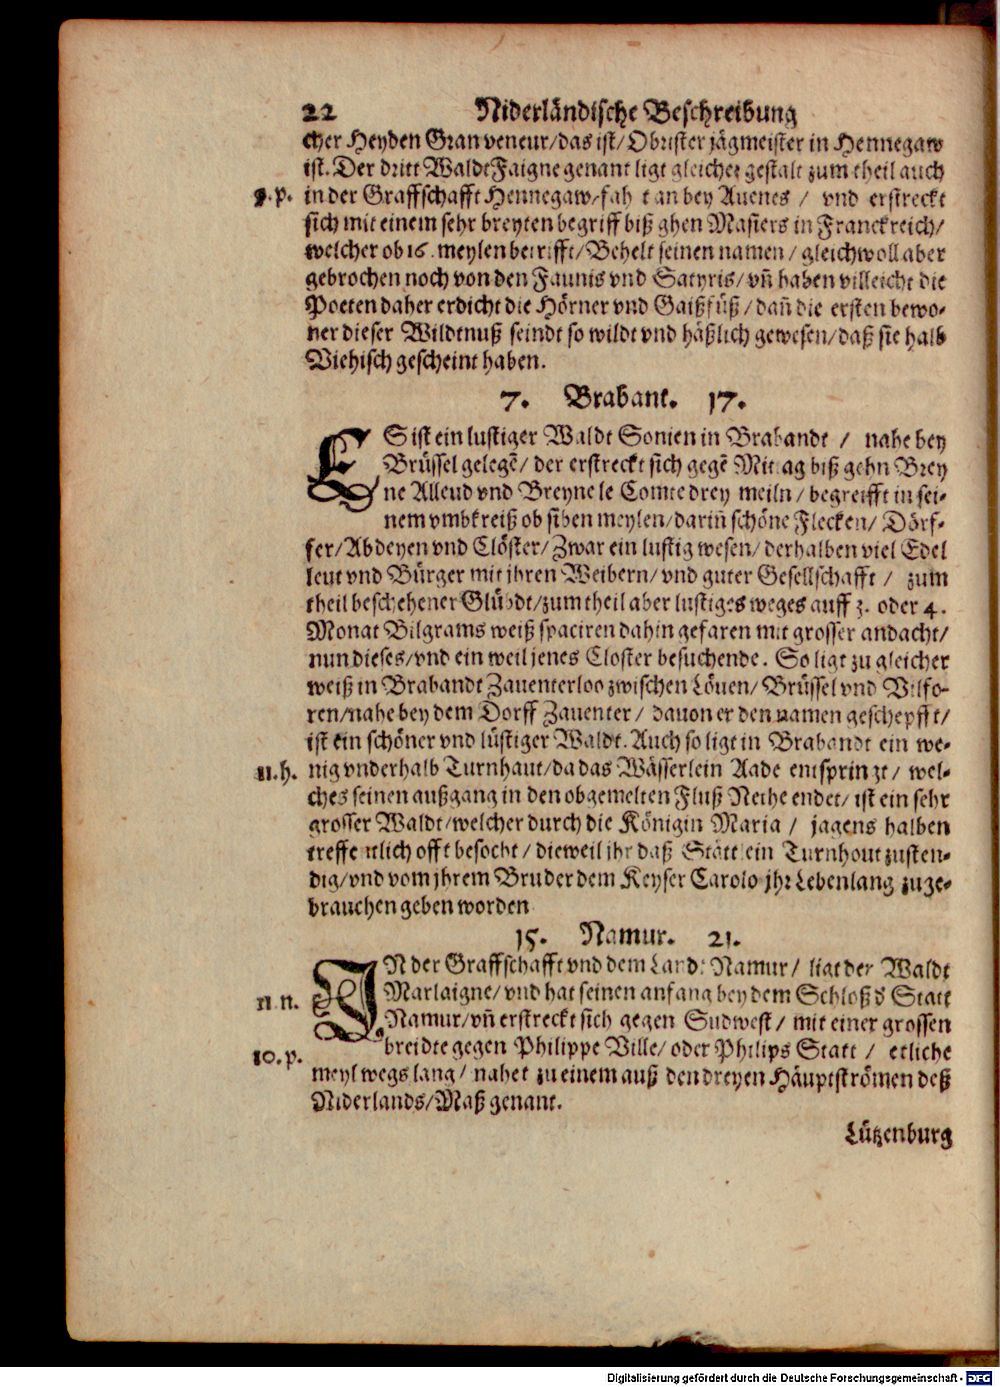 22 Niderländische Beschreibung
cher Heyden Gran veneur/das ist/Obrister jägmeister in Hennegaw
ist. Der dritt Waldt Faigne genant ligt gleicher gestalt zum theil auch
9.p. in der Graffschafft Hennegaw/fah t an bey Auenes / vnd erstreckt
sich mit einem sehr breyten begriff biß ghen Masiers in Franckreich/
welcher ob 16. meylen betrifft/Behelt seinen namen/gleichwoll aber
gebrochen noch von den Faunis vnd Satyris/vñ haben villeicht die
Poeten daher erdicht die Hörner vnd Gaißfüß/dañ die ersten bewo-
ner dieser Wildtnuß seindt so wildt vnd häßlich gewesen/daß sie halb
Viehisch gescheint haben.
7. Brabant. 17.
ES ist ein lustiger Waldt Sonien in Brabandt / nahe bey
Brüssel gelegē/ der erstreckt sich gegē Mittag biß gehn Brey
ne Alleud vnd Breyne le Comte drey meiln/begreifft in sei-
nem vmbkreiß ob siben meylen/dariñ schöne Flecken/ Dörf-
fer/Abdeyen vnd Clöster/Zwar ein lustig wesen/derhalben viel Edel
leut vnd Bürger mit jhren Weibern/vnd guter Gesellschafft / zum
theil beschehener Glübdt/zum theil aber lustiges weges auff 3. oder 4.
Monat Bilgrams weiß spaciren dahin gefaren mit grosser andacht/
nun dieses/vnd ein weil jenes Closter besuchende. So ligt zu gleicher
weiß in Brabandt Zauenterloo zwischen Löuen/Brüssel vnd Vilfo-
ren/nahe bey dem Dorff Zauenter / dauon er den namen geschepfft/
ist ein schöner vnd lüstiger Waldt. Auch so ligt in Brabandt ein we-
11.h. nig vnderhalb Turnhaut/da das Wässerlein Aade entsprinzt/ wel-
ches seinen außgang in den obgemelten Fluß Nethe endet/ ist ein sehr
grosser Waldt/welcher durch die Königin Maria / jagens halben
treffentlich offt besocht/dieweil jhr daß Stättlein Turnhout zusten-
dig/vnd vom jhrem Bruder dem Keyser Carolo jhr Lebenlang zuge-
brauchen geben worden
15. Namur. 21.
IN der Graffschafft vnd dem Landt Namur/ ligt der Waldt
11.n. Marlaigne/vnd hat seinen anfang bey dem Schloß d' Statt
Namur/vñ erstreckt sich gegen Sudwest / mit einer grossen
10.p. breidte gegen Philippe Ville/oder Philips Statt / etliche
meyl wegs lang/ nahet zu einem auß den dreyen Häuptströmen deß
Niderlands/Maß genant.
Lützenburg
Digitalisierung gefördert durch die Deutsche Forschungsgemeinschaft - DFG